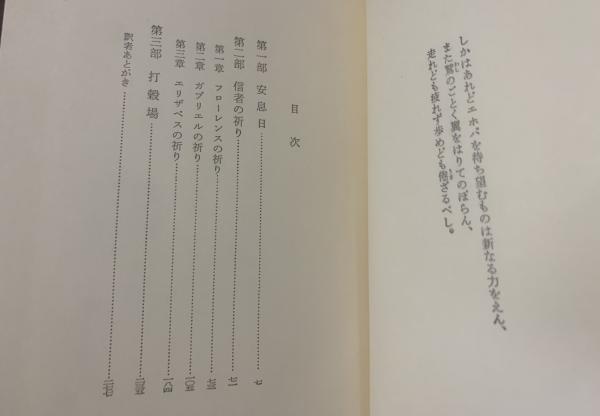 しかはあれどエホバを待ち望むものは新なる力をえん、
また鷲のごとく翼をはりてのぼらん、
走れども疲れず歩めども倦ざるべし。
目次
第一部 安息日 七
第二部 信者の祈り 七一
第一章 フローレンスの祈り 七三
第二章 ガブリエルの祈り 一〇五
第三章 エリザベスの祈り 一八四
第三部 打穀場
訳者あとがき